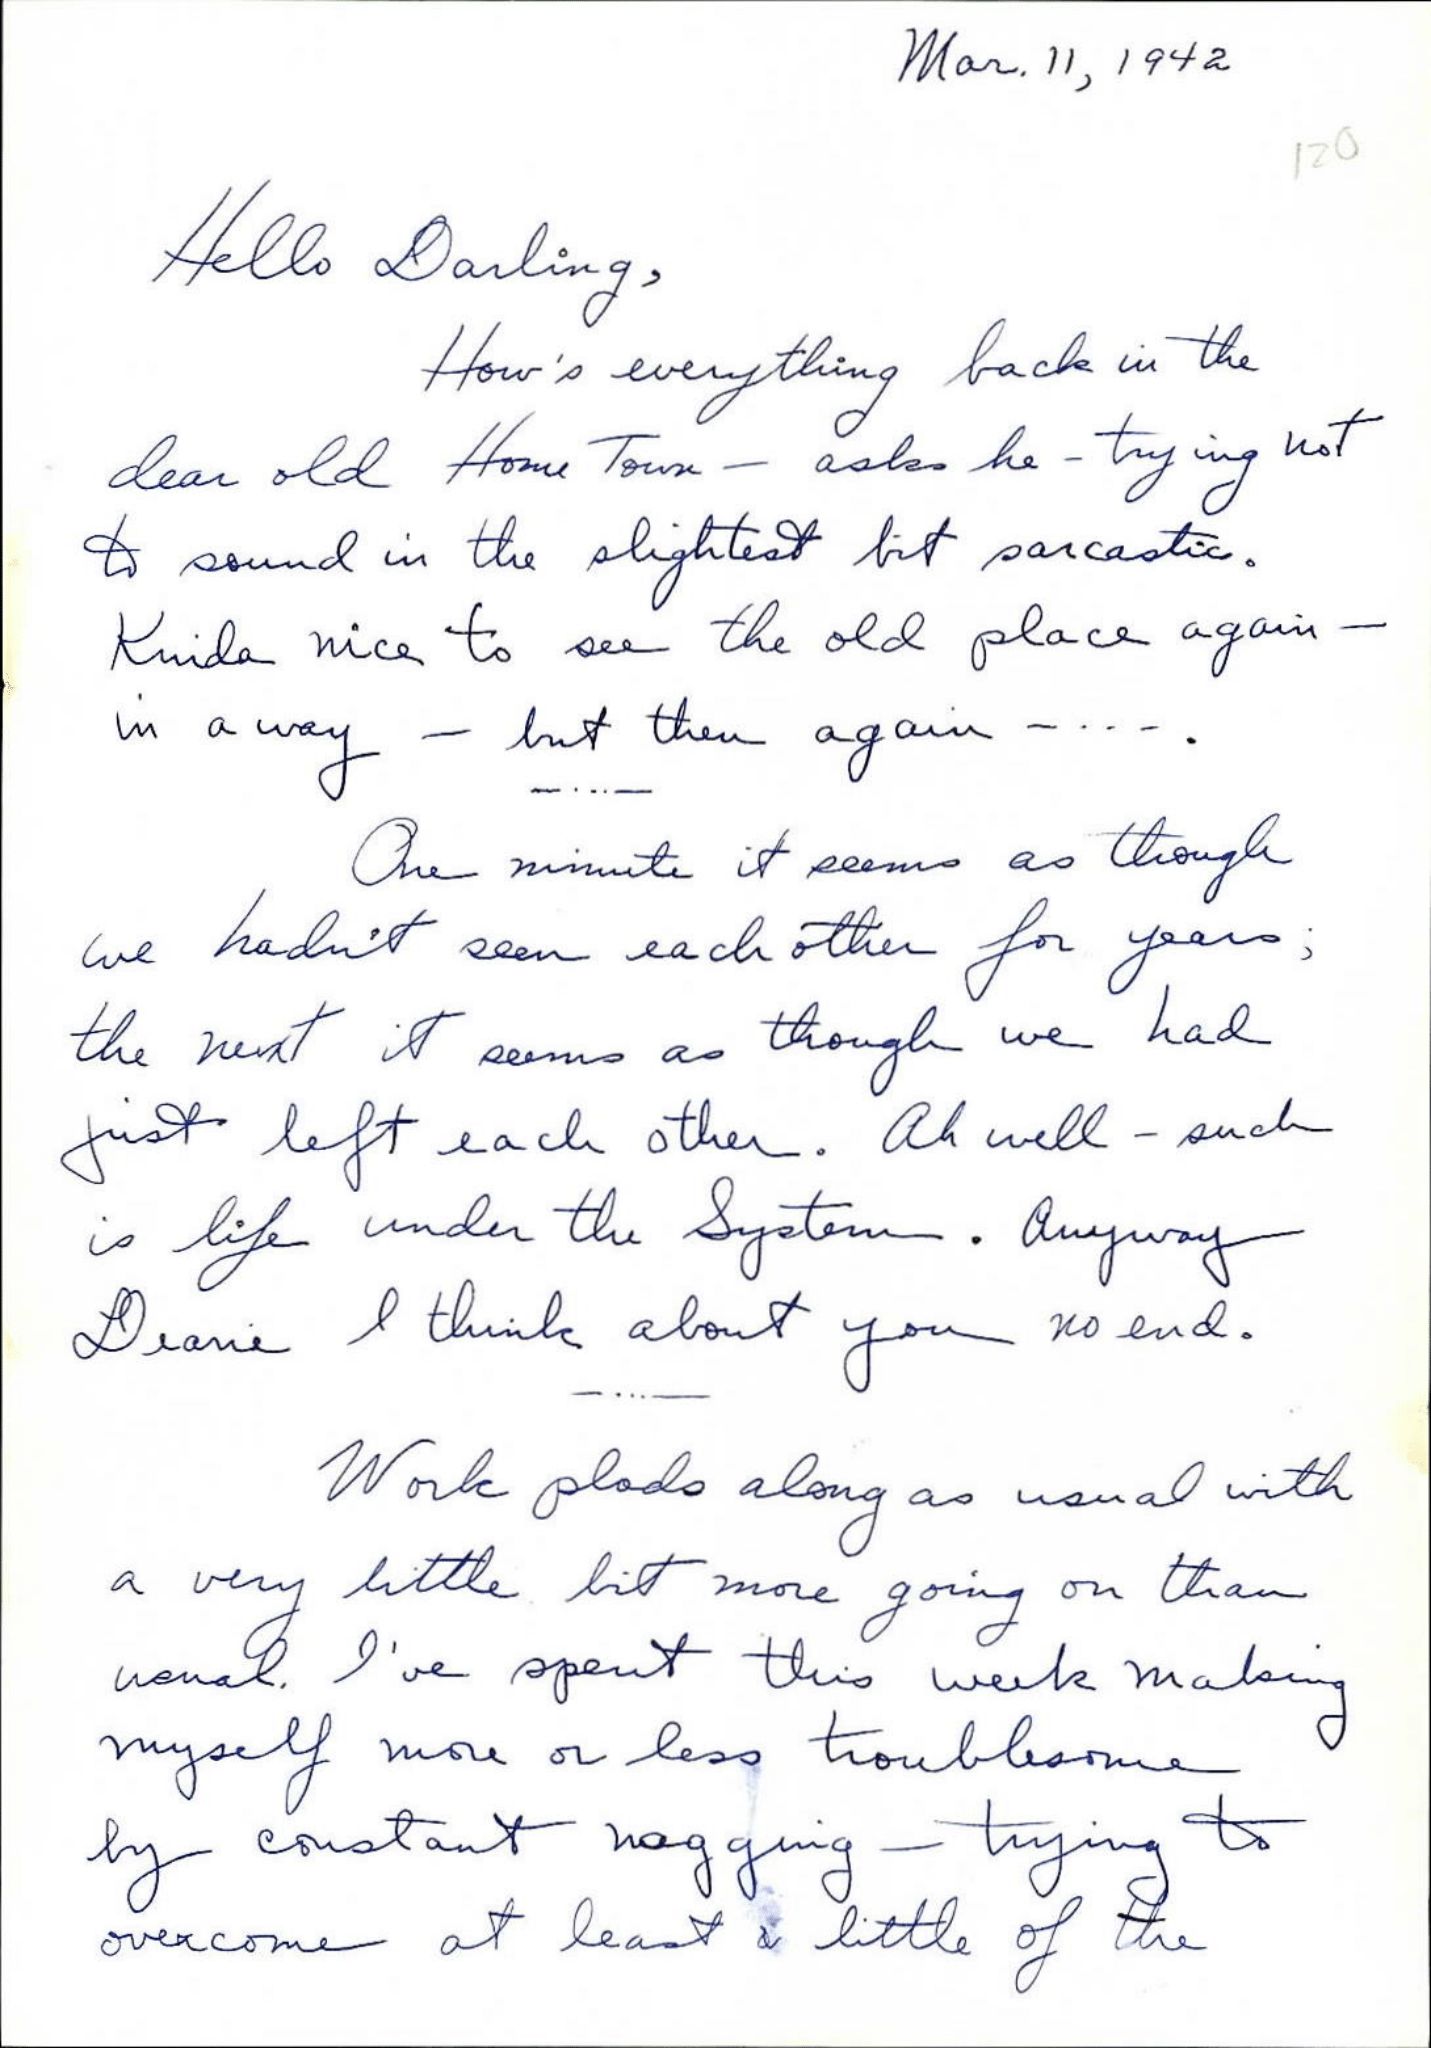 Mar. 11, 1942
120
Hello Darling,
How's everything back in the
dear old Home Town — asks he - trying not
to sound in the slightest bit sarcastic.
Kinda nice to see the old place again —
in a way — but then again - - - - - .
— . . . —
One minute it seems as though
we hadn't seen each other for years;
the next it seems as though we had
just left each other. Ah well - such
is life under the System. Anyway
Dearie I think about you no end.
— . . . —
Work plods along as usual with
a very little bit more going on than
usual. I've spent this week making
myself more or less troublesome
by constant nagging — trying to
overcome at least a little of the